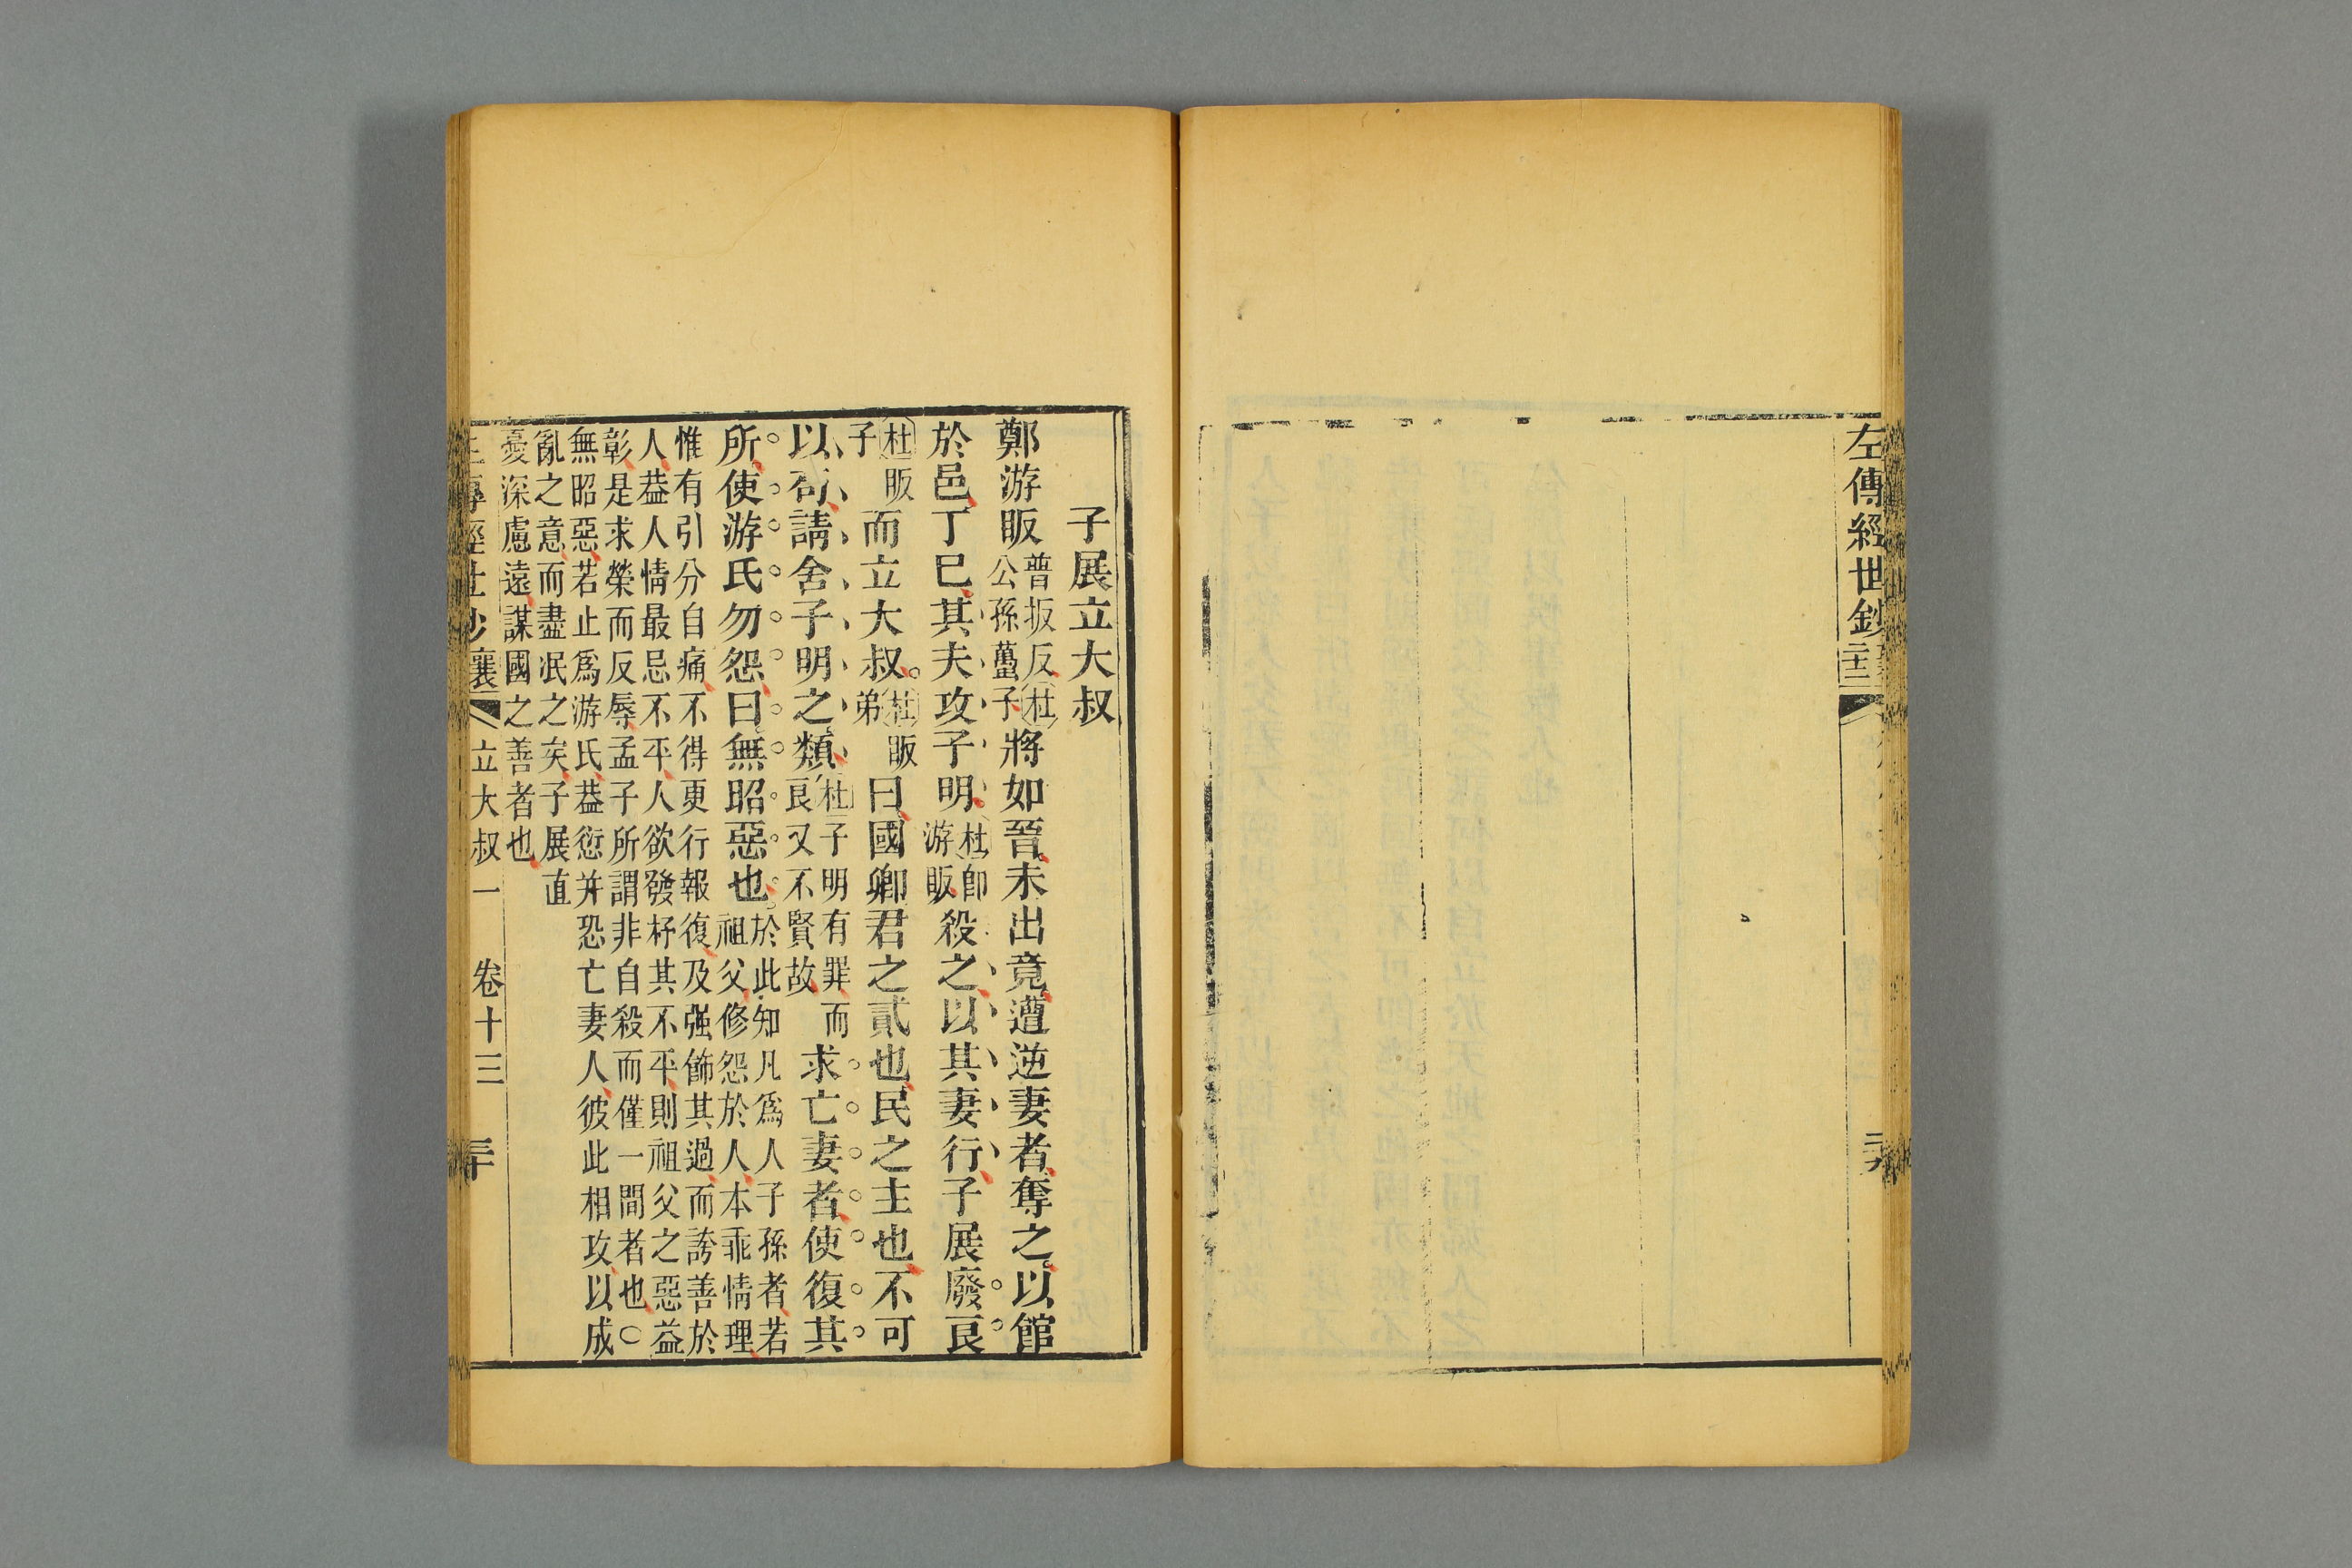 左傳經世鈔
子展立大叔
鄭游眅普扳反杜公孫蠆子將如晉未出竟遭逆妻者奪之以館
於邑丁巳其夫攻子明杜卽游眅殺之以其妻行子展廢良
杜眅子而立大叔杜眅弟曰國卿君之貳也民之主也不可
以苟請舍子明之類杜子明有罪而良又不賢故求亡妻者使復其
所使游氏勿怨曰無昭惡也於此知凡爲人子孫者若祖父修怨於人本乖情理
惟有引分自痛不得更行報復及强飾其過而誇善於
人葢人情最忌不平人欲發杼其不平則祖父之惡益
彰是求榮而反辱孟子所謂非自殺而僅一間者也○
無昭惡若止爲游氏葢愆并恐亡妻人彼此相攻以成
亂之意而盡泯之矣子展直
憂深慮遠謀國之善者也
襄 立大叔一 卷十三